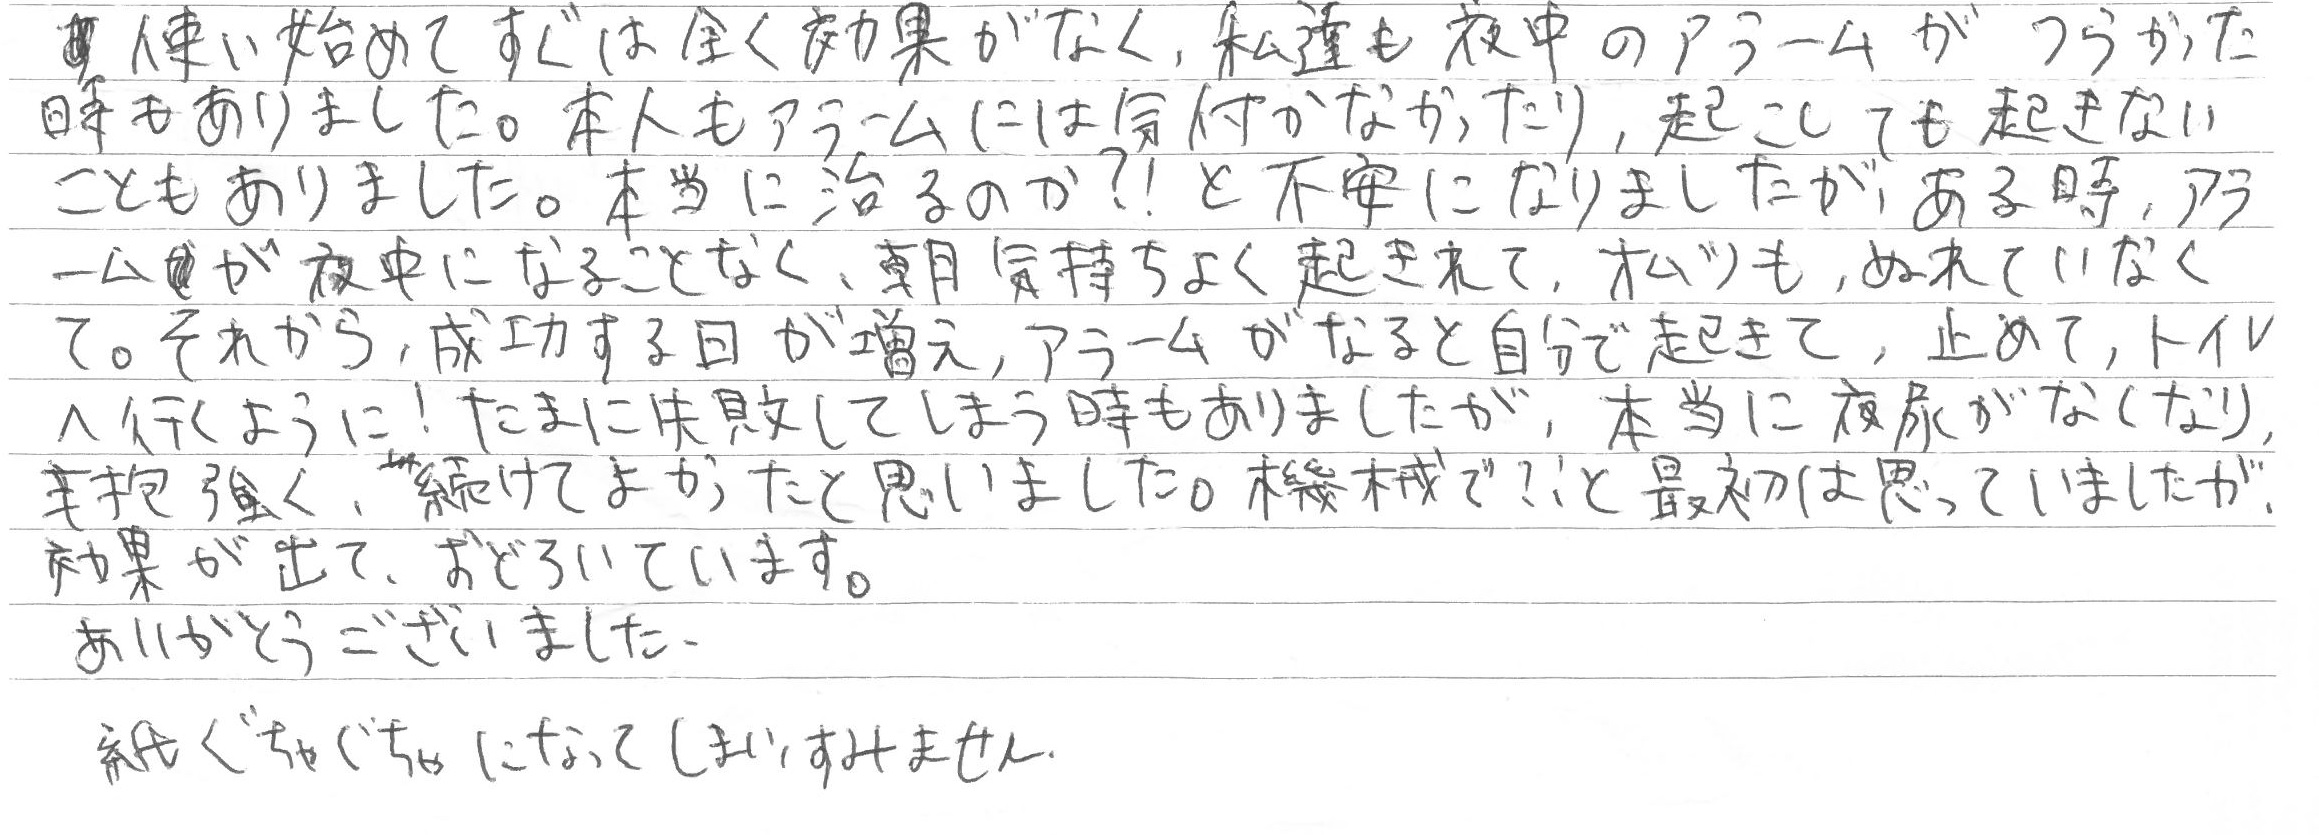 使い始めてすぐは全く効果がなく、私達も夜中のアラームがつらかった
時もありました。本人もアラームには気付かなかったり、起こしても起きない
こともありました。本当に治るのか?!と不安になりましたが、ある時、アラ
ームが夜中になることなく、朝気持ちよく起きれて、オムツも、ぬれていなく
て。それから、成功する日が増え、アラームがなると自分で起きて、止めて、トイレ
へ行くように!たまに失敗してしまう時もありましたが、本当に夜尿がなくなり、
辛抱強く、続けてよかったと思いました。機械で?!と最初は思っていましたが、
効果が出て、おどろいています。
ありがとうございました。
紙ぐちゃぐちゃになってしまい、すみません。